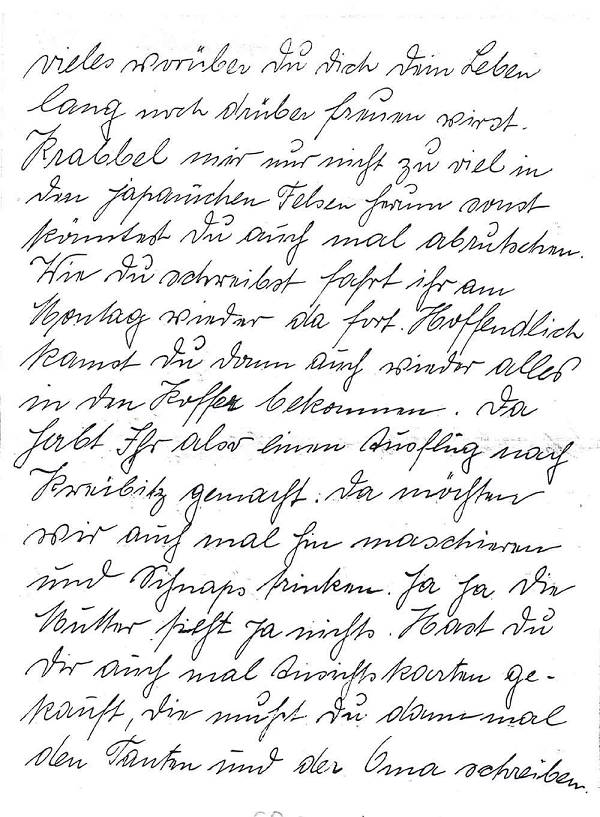 vieles worüber Du Dich Dein Leben
lang noch drüber freuen wirst.
Krabbel mir nur nicht zu viel in
den japanischen Felsen herum sonst
könntest Du auch mal abrutschen.
Wie Du schreibst fahrt ihr am
Montag wieder da fort. Hoffendlich
kannst Du dann auch wieder alles
in den Koffer bekommen. Da
habt Ihr also einen Ausflug nach
Kreibitz gemacht. Da möchten
wir auch mal hin maschieren
und Schnaps trinken. Ja ja die
Mutter sieht ja nichts. Hast Du
Dir auch mal Ansichtskarten ge-
kauft, die mußt Du dann mal
den Tanten und der Oma schreiben.